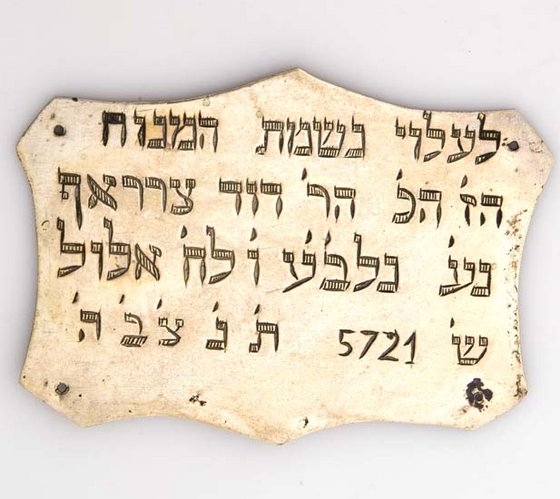 לעלוי נשמת המנוח
הז' הכ' הר' דוד צרראף
נע' נלב'ע ו' לח' אלול
ש' 5721 ת' נ' צ' ב' ה'